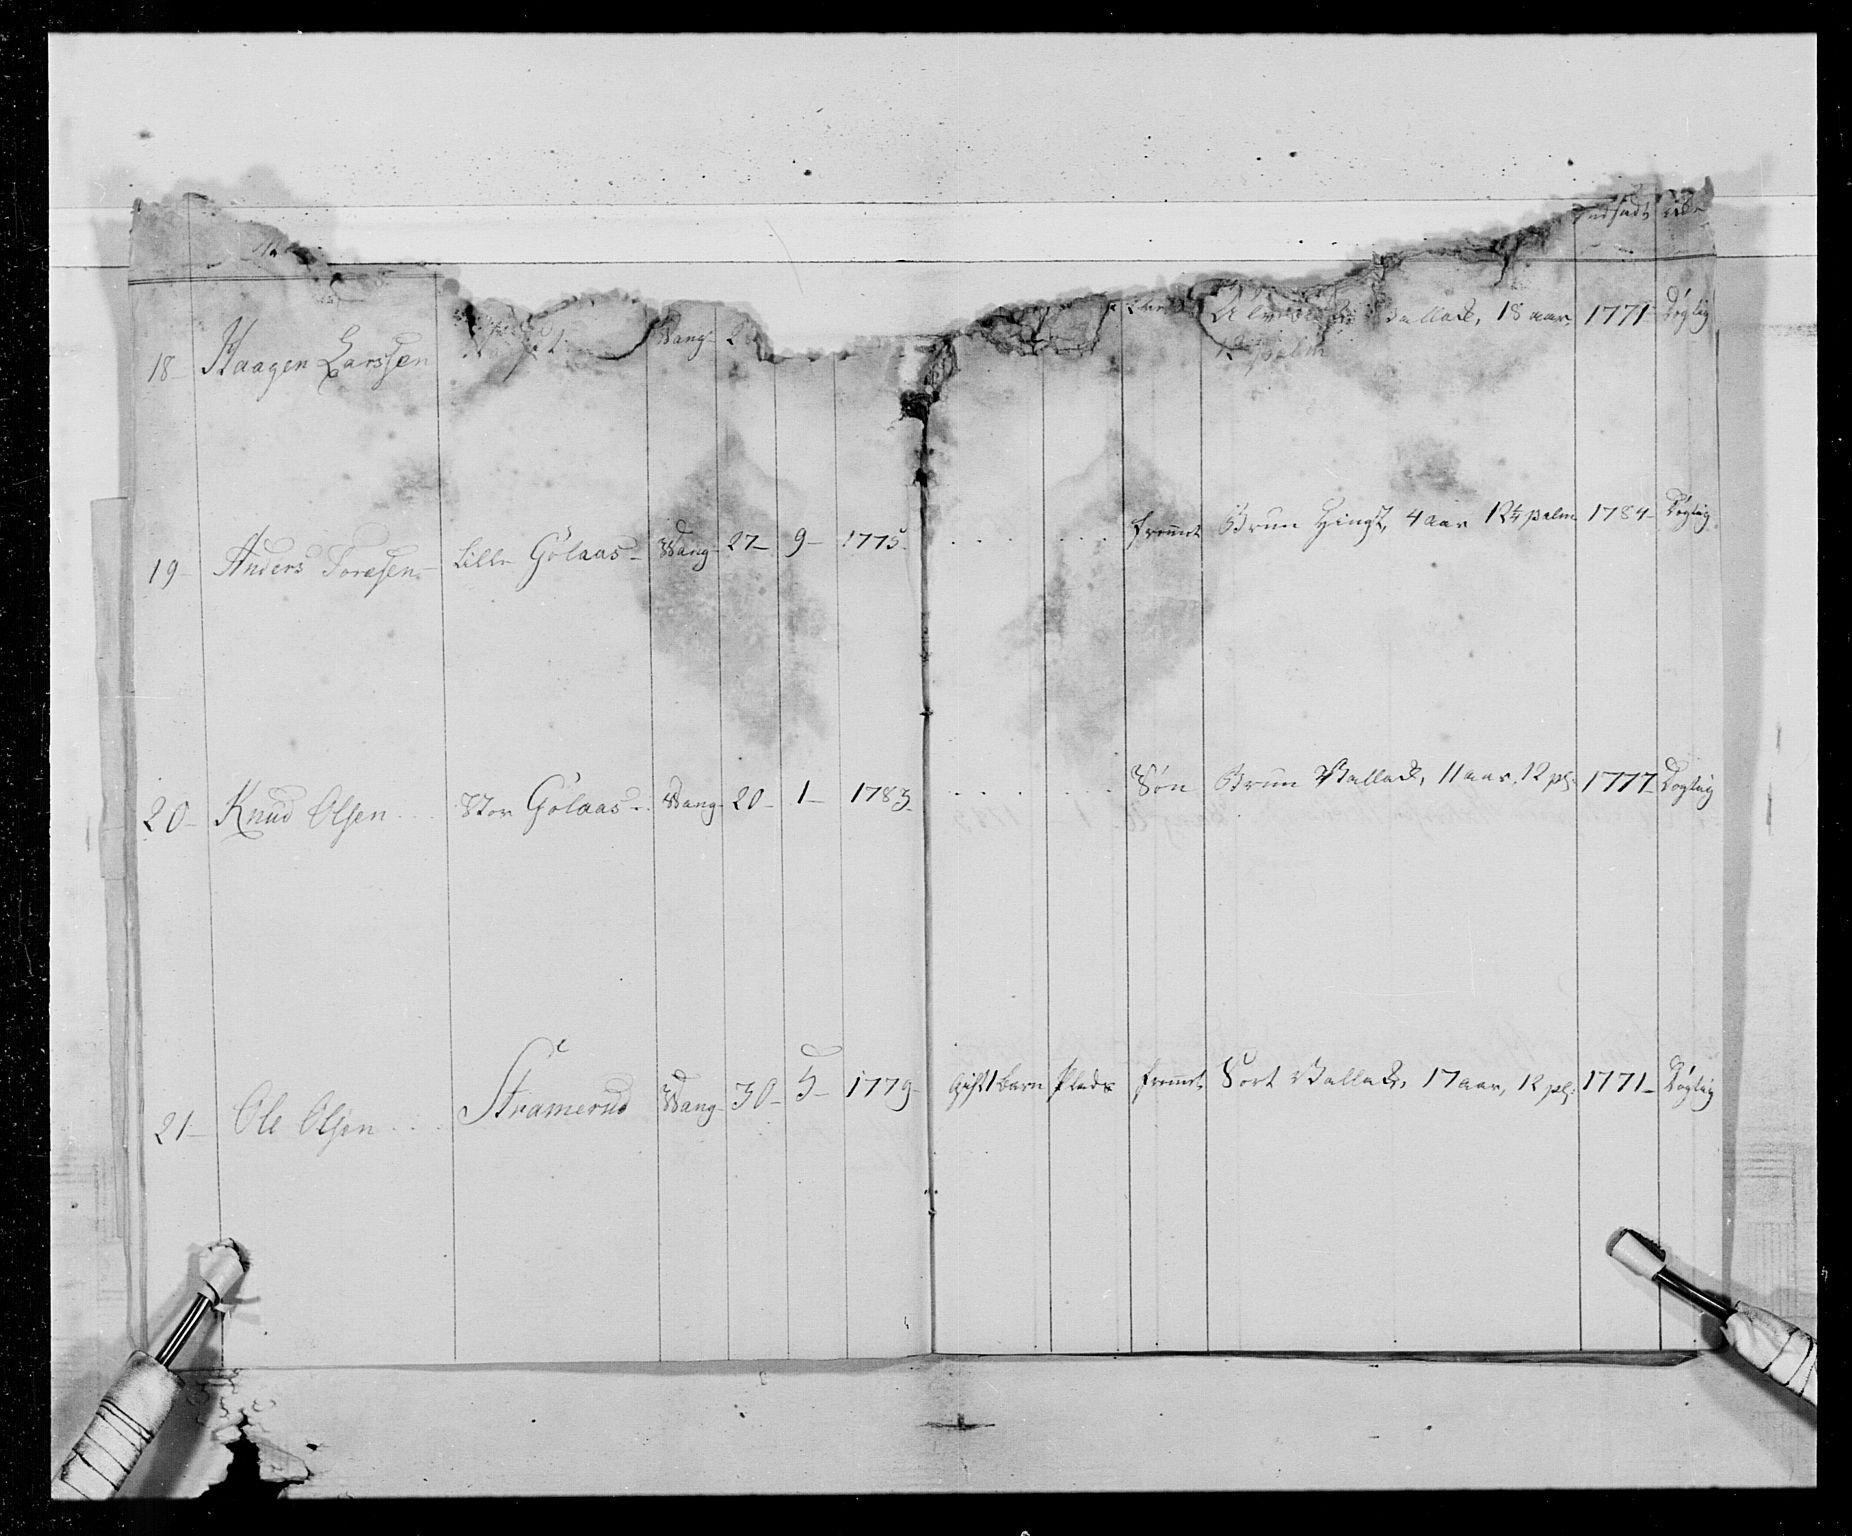 indsadt
18 Haagen Larssen Wang 2 Ballack, 18 aar, 1771 Dygtig
12 palm
19 Anders Toresen Lille Gölaas Wang 27 9 1775 fremet Brun Hingst, 4 aar 12¼ palm 1784 Dygtig
20 Knud Olsen Stor Gölaas Wang 20 1 1783 Søn Brun Vallack, 11 aar, 12 pl: 1777 Dygtig
21 Ole Olsen Stramerud Wang 30 5 1779 Gift 1 barn Plads fremet Sort Vallack, 17 aar, 12 pl: 1771 Dygtig